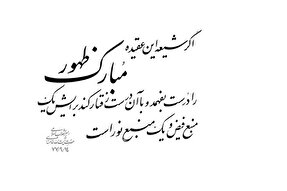 اگر شیعه این عقیده
مبارک ظهور
را درست بفهمد و با آن درست رفتار کند برایش یک
منبع فیض و یک منبع نور است